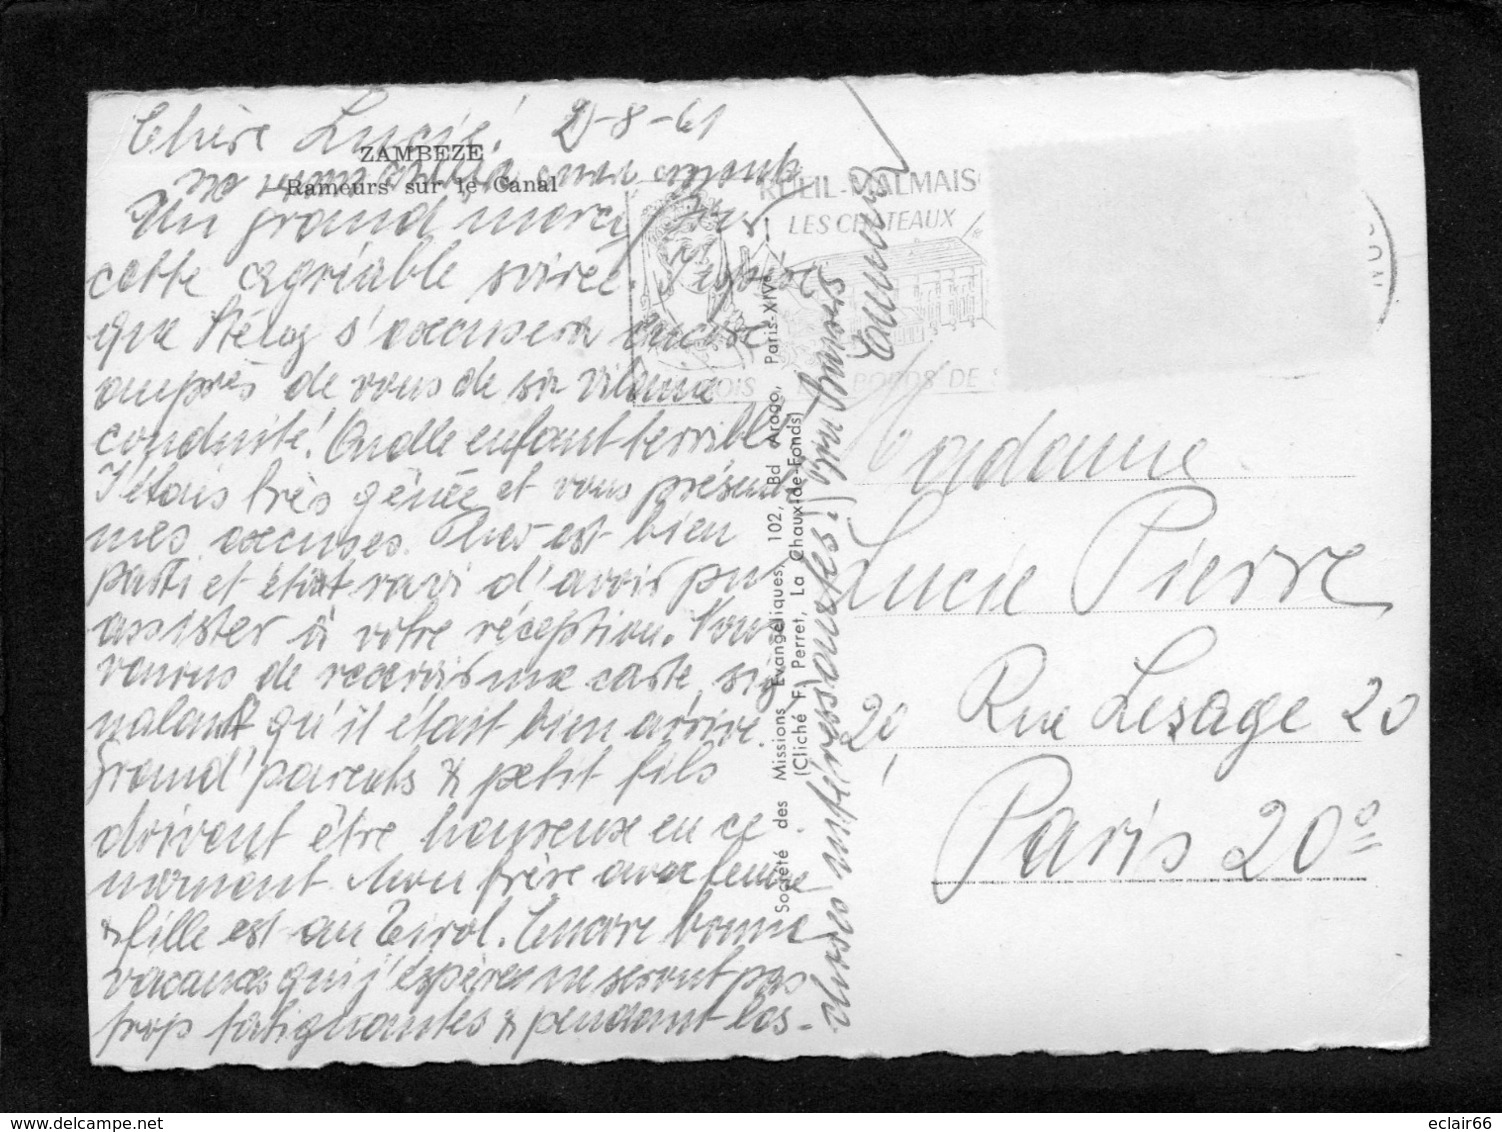 Chère Lucie! 2-8-61
ZAMBEZE
Rameurs sur le Canal
Un grand merci pour
cette agréable soirée. J'espère
que s'excusera encore
auprès de vous de sa vilaine
conduite! Quelle enfant terrible
J'étais très gênée et vous présente
mes excuses. est bien
parti et était ravi d'avoir pu
assister à votre réception. Nous
venons de recevoir une carte sig-
nalant qu'il était bien arrivé.
Grand'parents & petit fils
doivent être heureux en ce
moment. Mon frère avec femme
& fille est au Tirol. Encore bonne
vacances qui j'espère ne seront pas
trop fatiguantes & pendant les-
choses intéressantes! Bon baisers
RUEIL-MALMAIS
LES CHATEAUX
BORDS DE S
Société des Missions Evangéliques, 102, Bd Arago, Paris-XIVe
(Cliché F. Perret, La Chaux-de-Fonds)
Madame
Lucie Pierre
20, Rue Lesage 20
Paris 20e
eclair66